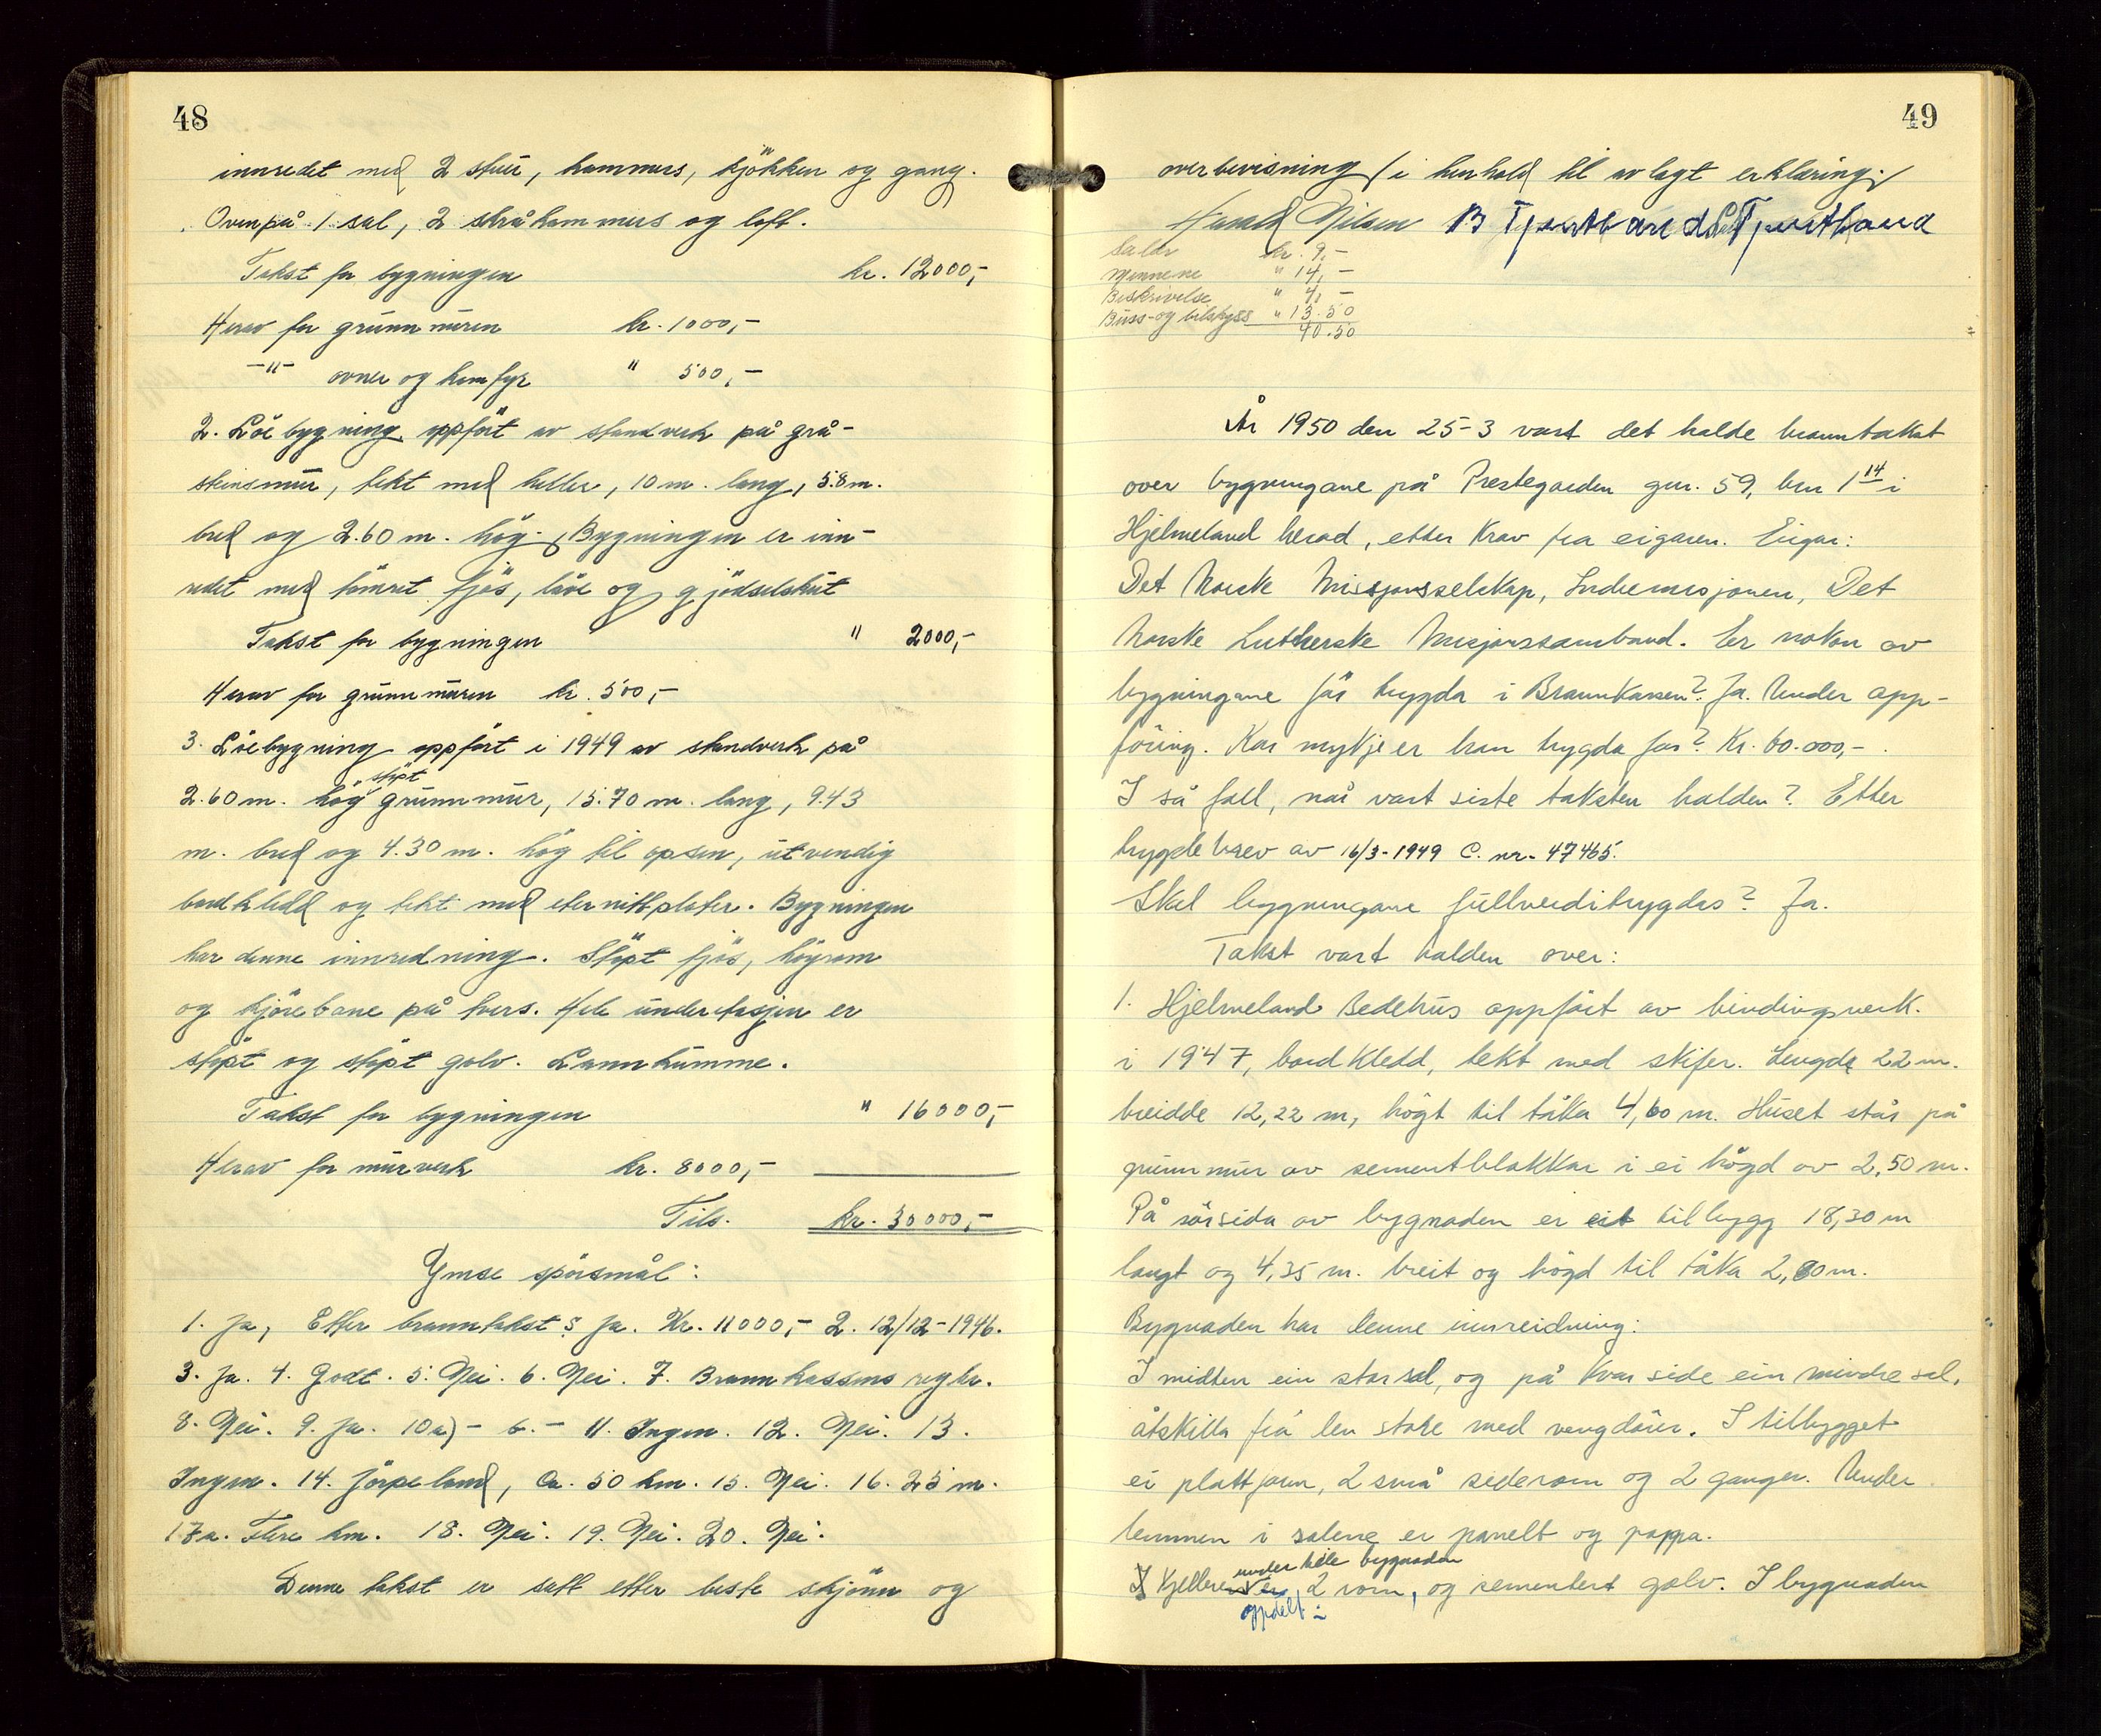 48
innredet med 2 stuer, kammers, kjökken og gang.
Ovenpå 1 sal, 2 skråkammers og loft.
Takst for bygningen kr. 12000,-
Herav for grunnmuren kr. 1000,-
-"- ovner og komfyr " 500,-
2. Löebygning oppfört av standverk på grå-
steinsmur, tekt med heller, 10 m. lang, 5.8 m.
bred og 2.60 m. hög. Bygningen er inn-
redet med tömret fjös, löe og gjödselskut
Takst for bygningen " 2000,-
Herav for grunnmuren kr. 500,-
3. Löebygning oppfört i 1949 av standverk på
2.60 m. hög støpt grunnmur, 15.70 m. lang, 9.43
m. bred og 4.30 m. hög til opsen, utvendig
bordkledd og tekt med eternittplater. Bygningen
har denne innredning. Stöpt fjös, höyrom
og kjörebane på tvers. Hele underetasjen er
stöpt og stöpt golv. Lannkumme.
Takst for bygningen " 16000,-
Herav for murverk kr. 8000,-
Tils. kr. 30000,-
Ymse spörsmål:
1. Ja, Etter branntakst? Ja. Kr. 11000,- 2. 12/12-1946.
3. Ja. 4. Godt. 5. Nei. 6. Nei. 7. Brannkassens regler.
8. Nei. 9. Ja. 10a) - b. - 11. Ingen. 12. Nei. 13.
Ingen. 14. Jörpeland, Ca. 50 km. 15. Nei. 16. 25 m.
17a. Flere km. 18. Nei. 19. Nei. 20. Nei.
Denne takst er satt etter beste skjönn og
49
overbevisning i henhold til avlagt erklæring.
Harald Nilsen B Tjentland
kr. 9,-
" 14,-
Beskrivelse " 4,-
Buss- og bilskyss " 13.50
40.50
År 1950 den 25-3 vart det halde branntakst
over bygningane på Prestegarden gnr. 59, bnr 1 14 i
Hjelmeland herad, etter krav fra eigaren. Eigar:
Det Norske Misjonsselskap, Indremisjonen, Det
Norske Lutherske Misjonssamband. Er nokon av
bygningane för trygda i Brannkassen? Ja. Under opp-
föring. Kor mykje er han trygda for? Kr. 60.000,-.
I så fall, når vart siste taksten halden? Etter
trygdebrev av 16/3-1949 C. nr. 47465.
Skal bygningane fullverditrygdes? Ja.
Takst vart halden over:
1. Hjelmeland Bedehus oppfört av bindingsverk.
i 1947, bordkledd, tekt med skifer. Lengde 22 m.
breidde 12,22 m, högt til tåka 4,60 m. Huset står på
grunnmur av sementblokkar i ei högd av 2,50 m.
På sörsida av bygnaden er eit tilbygg 18,30 m
langt og 4,35 m. breit og högd til tåka 2,80 m.
Bygnaden har denne innreidning:
I midten ein storsal, og på kvar side ein mindre sal,
åtskilla frå den store med vengdörer. I tilbygget
ei plattform, 2 små siderom og 2 ganger. Under
lemmen i salene er panelt og pappa.
under heile bygnaden
I Kjelleren er 2 rom, og sementert golv. I bygnaden
oppdelt i